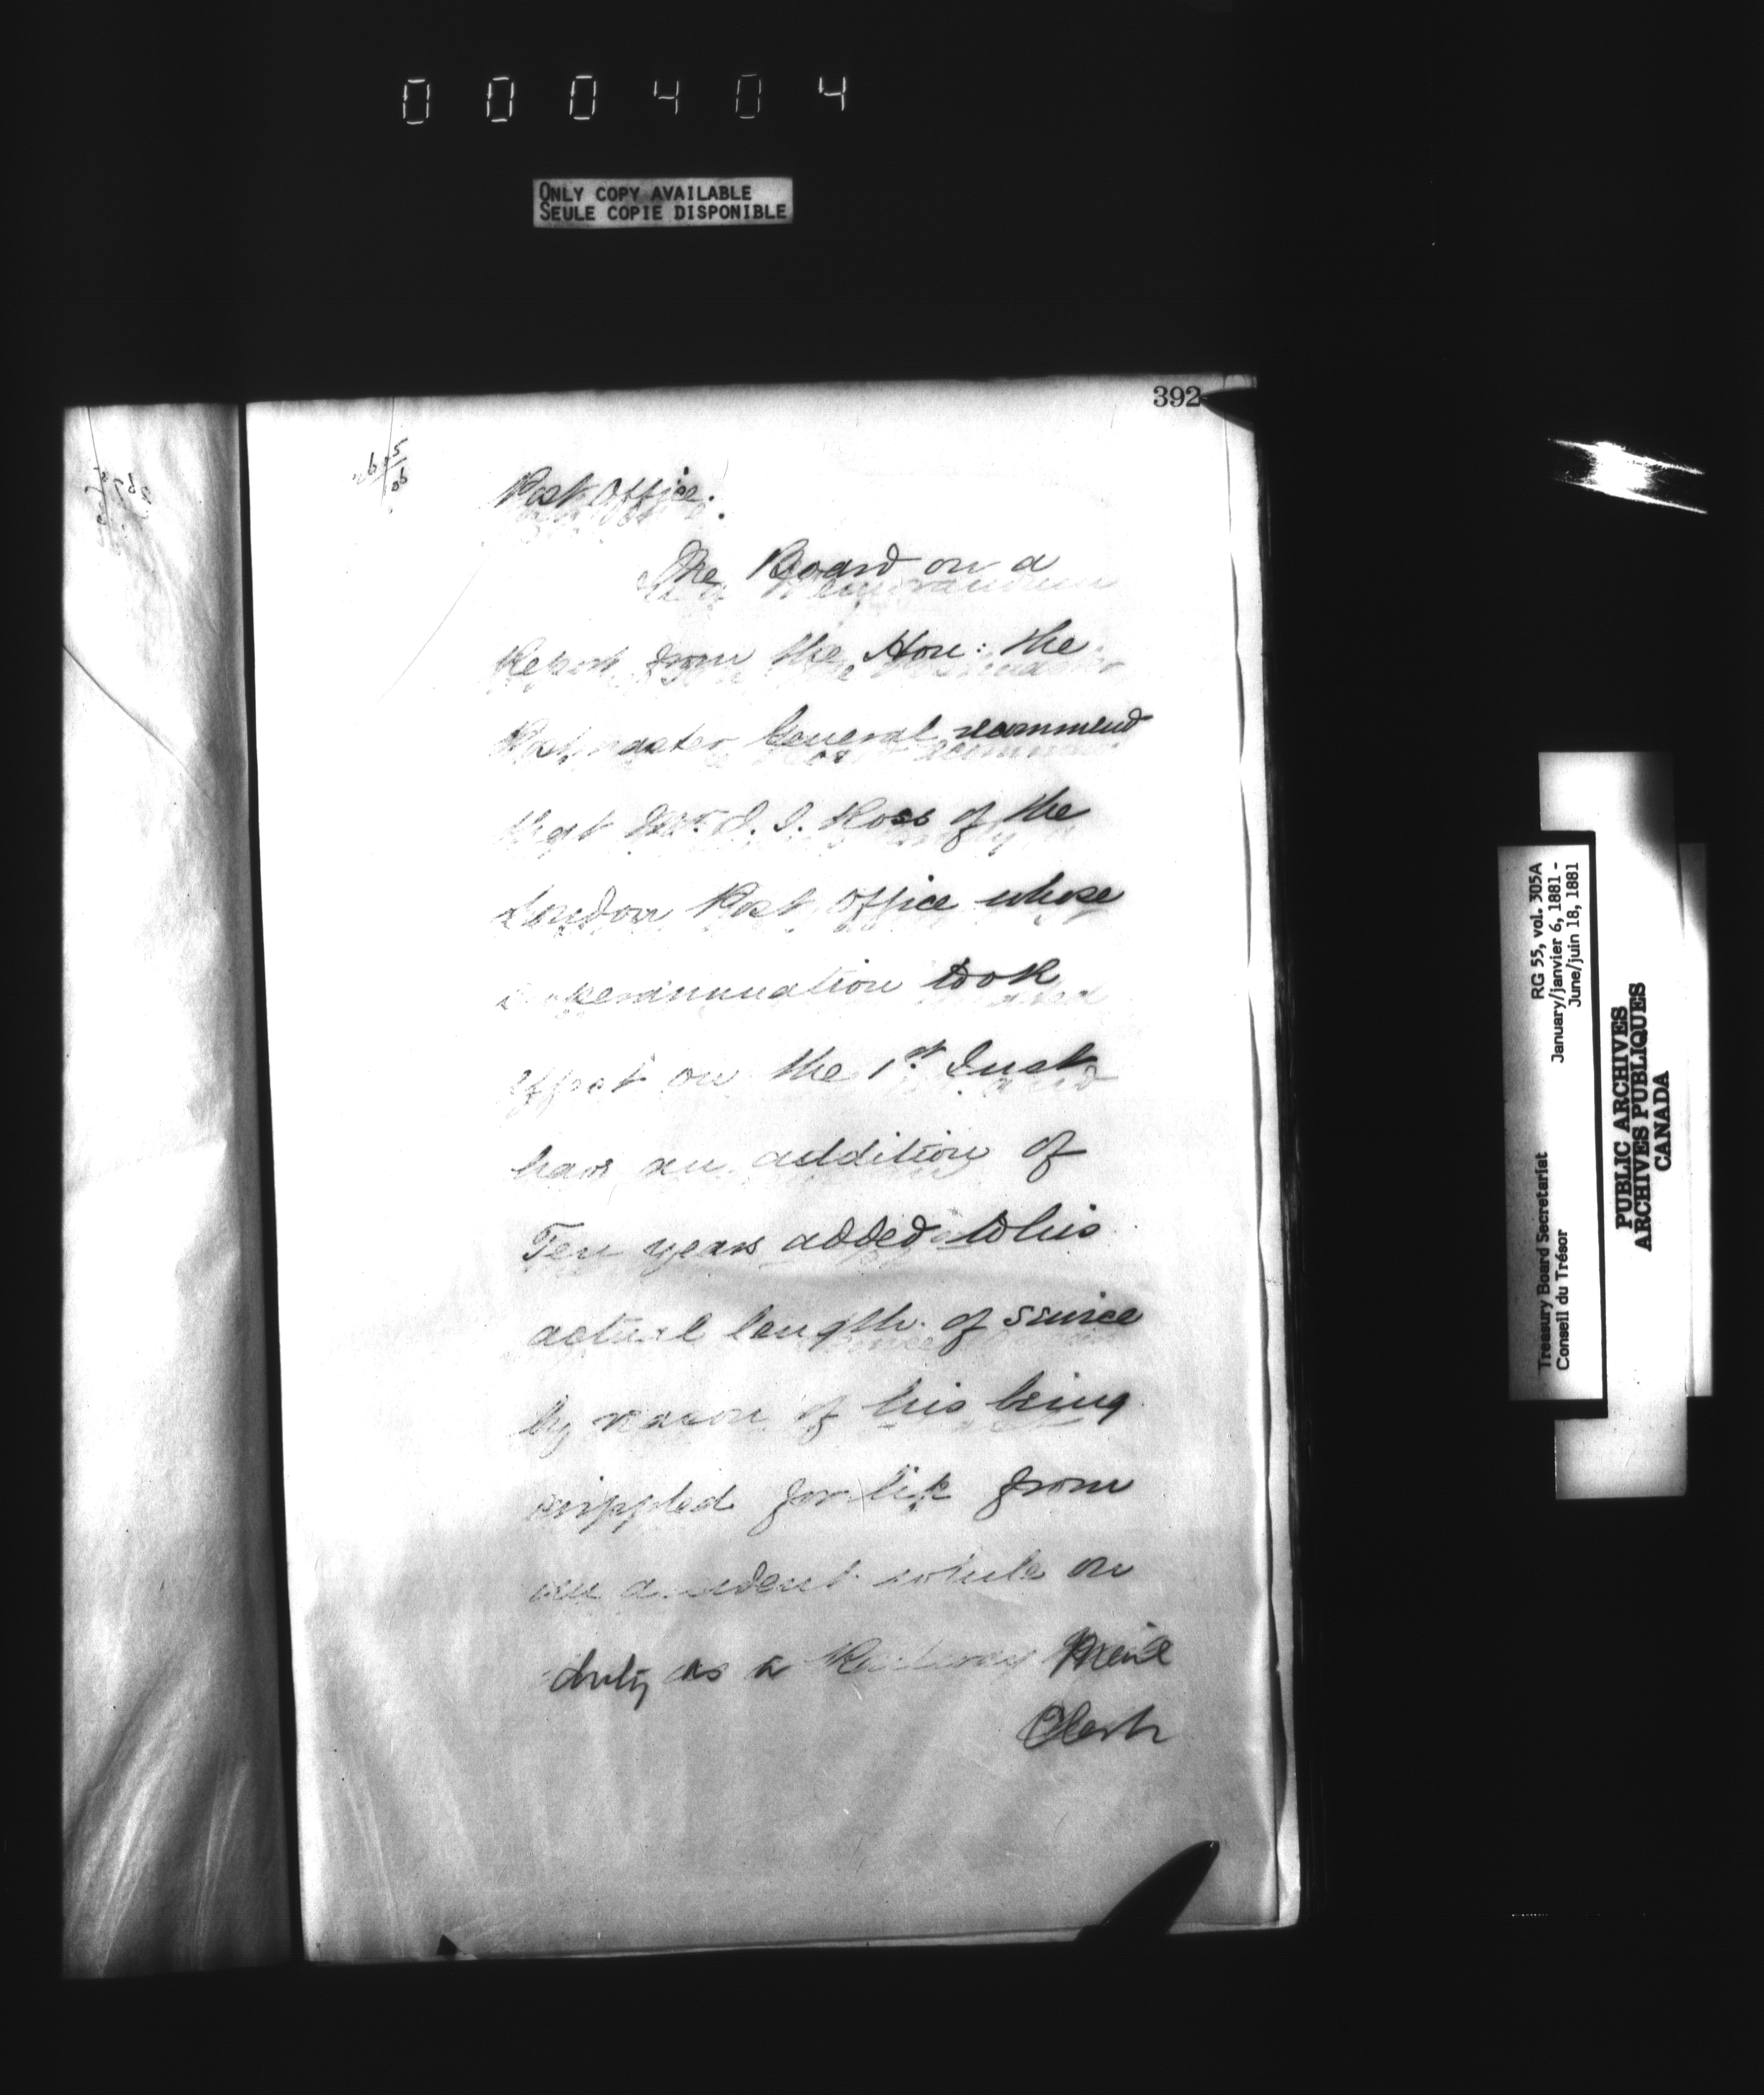 000404
ONLY COPY AVAILABLE
SEULE COPIE DISPONIBLE
392
Post Office.
The Board on a
Report from the Hon: the
Postmaster General recommend
that Mr. J. J. Ross of the
London Post Office whose
superannuation took
effect on the 1st Inst
have an addition of
Ten years added to his
actual length of service
by reason of his being
crippled for life from
an accident while on
duty as a Railway Mail
Clerk
RG 55, vol. 305A
January/janvier 6, 1881 -
June/juin 18, 1881
Treasury Board Secretariat
Conseil du Trésor
PUBLIC ARCHIVES
ARCHIVES PUBLIQUES
CANADA